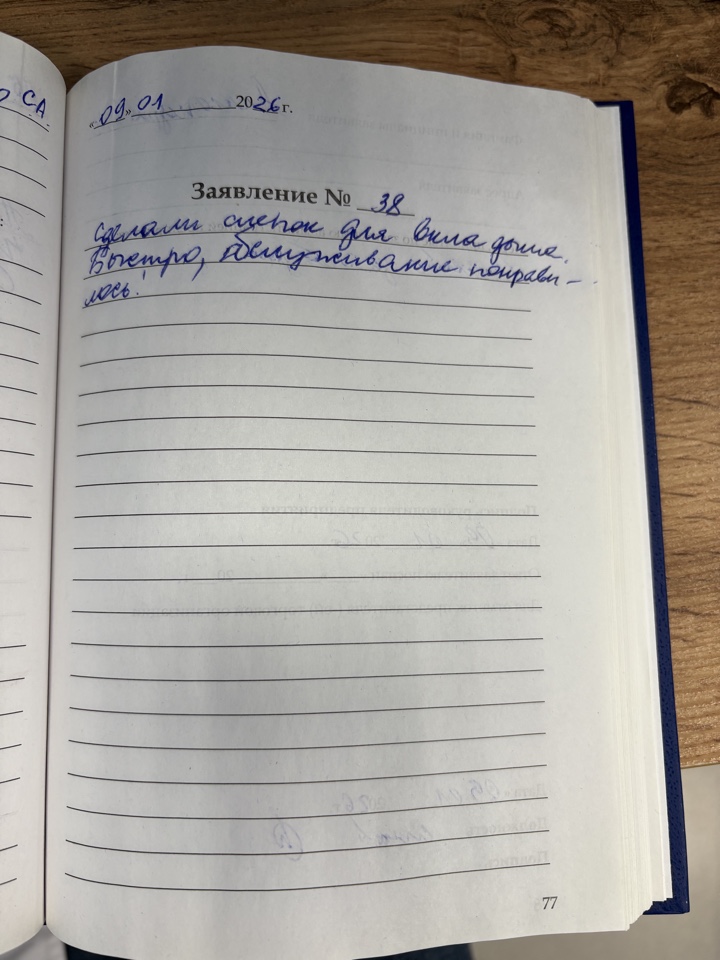 СА.
«09» 01 2026 г.
Заявление № 38
Сделали слепок для вкладыша.
Быстро, обслуживание понрави-
лось!
77